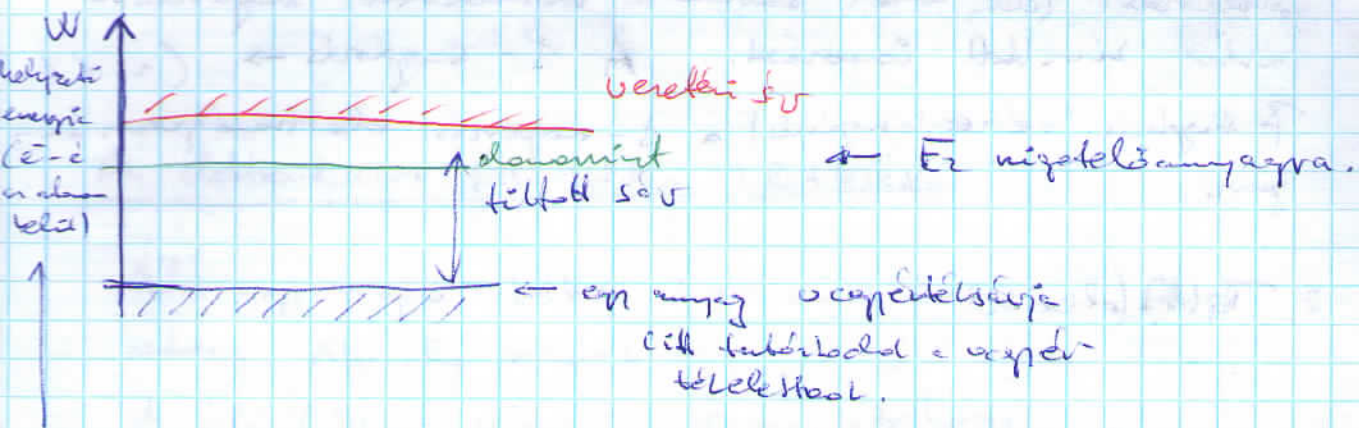 W
helyzeti
energia
(e⁻-é
az atomon
belül)
vezetési sáv
donorszint
tiltott sáv
← Ez szigetelőanyagra.
← egy anyag vegyértéksávja
(itt tartózkodnak a vegyér-
tékelektronok.